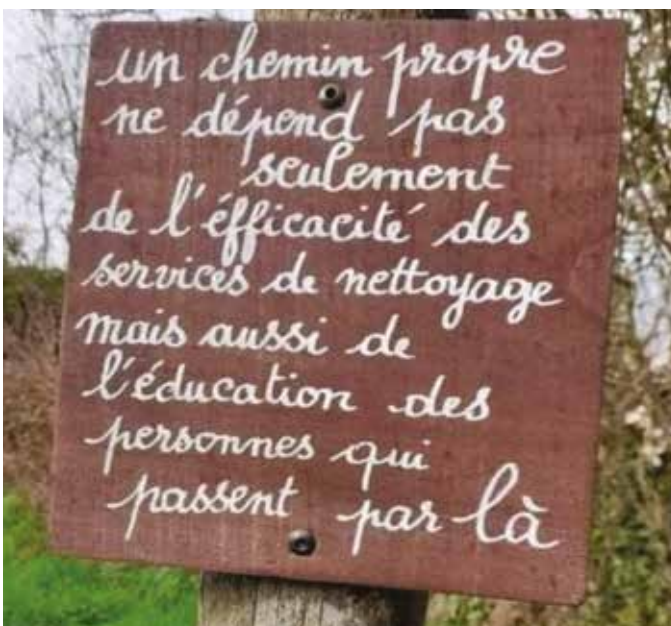 un chemin propre
ne dépend pas
seulement
de l'éfficacité des
services de nettoyage
mais aussi de
l'éducation des
personnes qui
passent par là